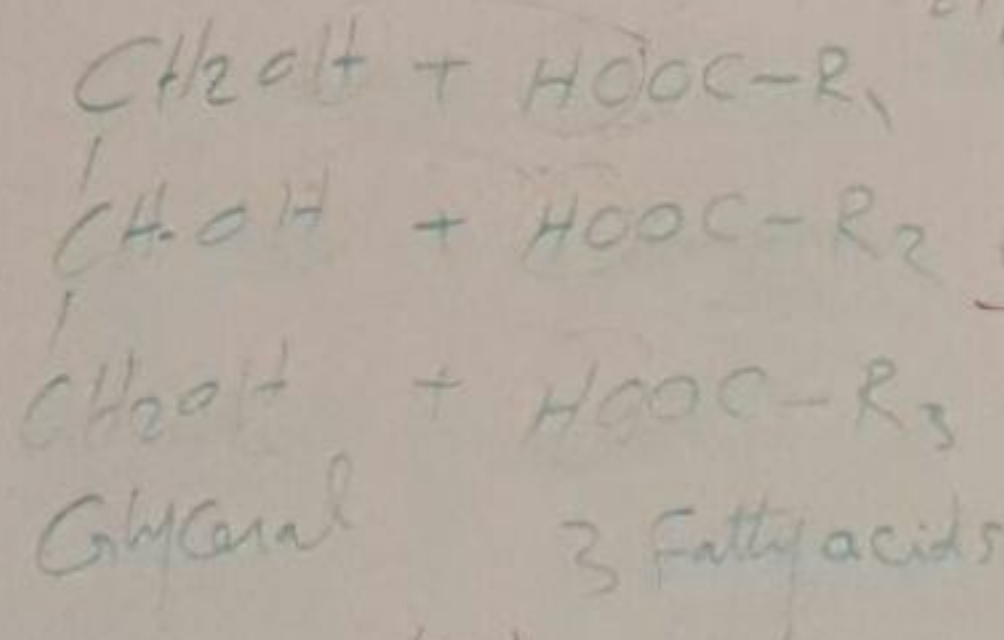 CH2OH + HOOC-R1
CH-OH + HOOC-R2
CH2OH + HOOC-R3
Glycerol 3 Fatty acids